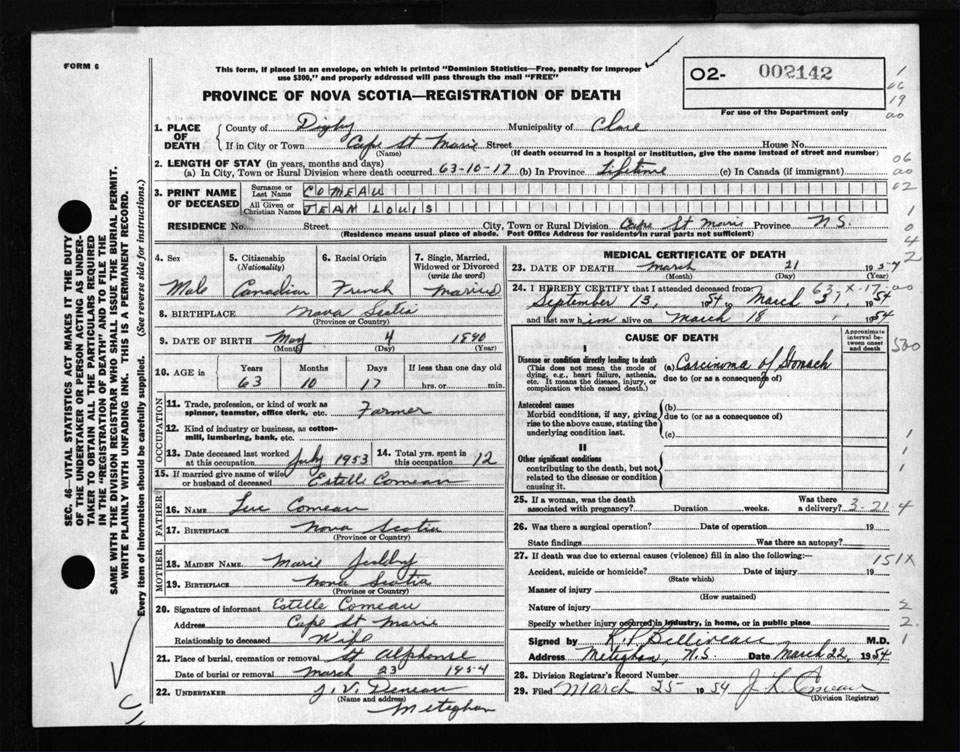 FORM 6
This form, if placed in an envelope, on which is printed "Dominion Statistics—Free, penalty for improper
use $300," and properly addressed will pass through the mail "FREE"
02- 002142
For use of the Department only
PROVINCE OF NOVA SCOTIA—REGISTRATION OF DEATH
1. PLACE OF DEATH
County of Digby Municipality of Clare
If in City or Town Cape St Marie Street House No.
(Name) (If death occurred in a hospital or institution, give the name instead of street and number)
2. LENGTH OF STAY (in years, months and days)
(a) In City, Town or Rural Division where death occurred 63-10-17 (b) In Province Lifetime (c) In Canada (if immigrant)
3. PRINT NAME OF DECEASED
Surname or Last Name COMEAU
All Given or Christian Names JEAN LOUIS
RESIDENCE No. Street City, Town or Rural Division Cape St Maris Province N.S.
(Residence means usual place of abode. Post Office Address for residents in rural parts not sufficient)
4. Sex
Male
5. Citizenship (Nationality)
Canadian
6. Racial Origin
French
7. Single, Married, Widowed or Divorced (write the word)
Married
8. BIRTHPLACE Nova Scotia
(Province or Country)
9. DATE OF BIRTH May 4 1890
(Month) (Day) (Year)
10. AGE in
Years Months Days If less than one day old
63 10 17 hrs. or min.
OCCUPATION
11. Trade, profession, or kind of work as
spinner, teamster, office clerk, etc. Farmer
12. Kind of industry or business, as cotton-
mill, lumbering, bank, etc.
13. Date deceased last worked at this occupation July 1953 14. Total yrs. spent in this occupation 12
15. If married give name of wife
or husband of deceased Estelle Comeau
FATHER
16. NAME Luc Comeau
17. BIRTHPLACE Nova Scotia
(Province or Country)
MOTHER
18. MAIDEN NAME Marie
19. BIRTHPLACE Nova Scotia
(Province or Country)
20. Signature of informant Estelle Comeau
Address Cape St Marie
Relationship to deceased Wife
21. Place of burial, cremation or removal St Alphonse
Date of burial or removal March 23 1954
22. UNDERTAKER J. V. Deveau
(Name and address)
Meteghan
MEDICAL CERTIFICATE OF DEATH
23. DATE OF DEATH March 21 1954
(Month) (Day) (Year)
24. I HEREBY CERTIFY that I attended deceased from:
September 13, 1954 to March 1954
and last saw him alive on March 18, 1954
CAUSE OF DEATH
Approximate interval between onset and death
I
Disease or condition directly leading to death
(This does not mean the mode of
dying, e.g., heart failure, asthenia,
etc. It means the disease, injury, or
complication which caused death.)
(a) Carcinoma of Stomach
due to (or as a consequence of)
Antecedent causes
Morbid conditions, if any, giving
rise to the above cause, stating the
underlying condition last.
(b)
due to (or as a consequence of)
(c)
II
Other significant conditions
contributing to the death, but not
related to the disease or condition
causing it.
25. If a woman, was the death
associated with pregnancy? Duration weeks. Was there a delivery? 3-21-4
26. Was there a surgical operation? Date of operation 19
State findings Was there an autopsy?
27. If death was due to external causes (violence) fill in also the following:—
151X
Accident, suicide or homicide? Date of injury 19
(State which)
Manner of injury
(How sustained)
Nature of injury
Specify whether injury occurred in industry, in home, or in public place
Signed by R. P. Belliveau M.D.
Address Meteghan, N.S. Date March 22, 1954
28. Division Registrar's Record Number
29. Filed March 25 1954 J L Comeau
(Division Registrar)
SEC. 46—VITAL STATISTICS ACT MAKES IT THE DUTY
OF THE UNDERTAKER OR PERSON ACTING AS UNDER-
TAKER TO OBTAIN ALL THE PARTICULARS REQUIRED
IN THE "REGISTRATION OF DEATH" AND TO FILE THE
SAME WITH THE DIVISION REGISTRAR WHO SHALL ISSUE THE BURIAL PERMIT.
WRITE PLAINLY WITH UNFADING INK. THIS IS A PERMANENT RECORD.
Every item of information should be carefully supplied. (See reverse side for instructions.)